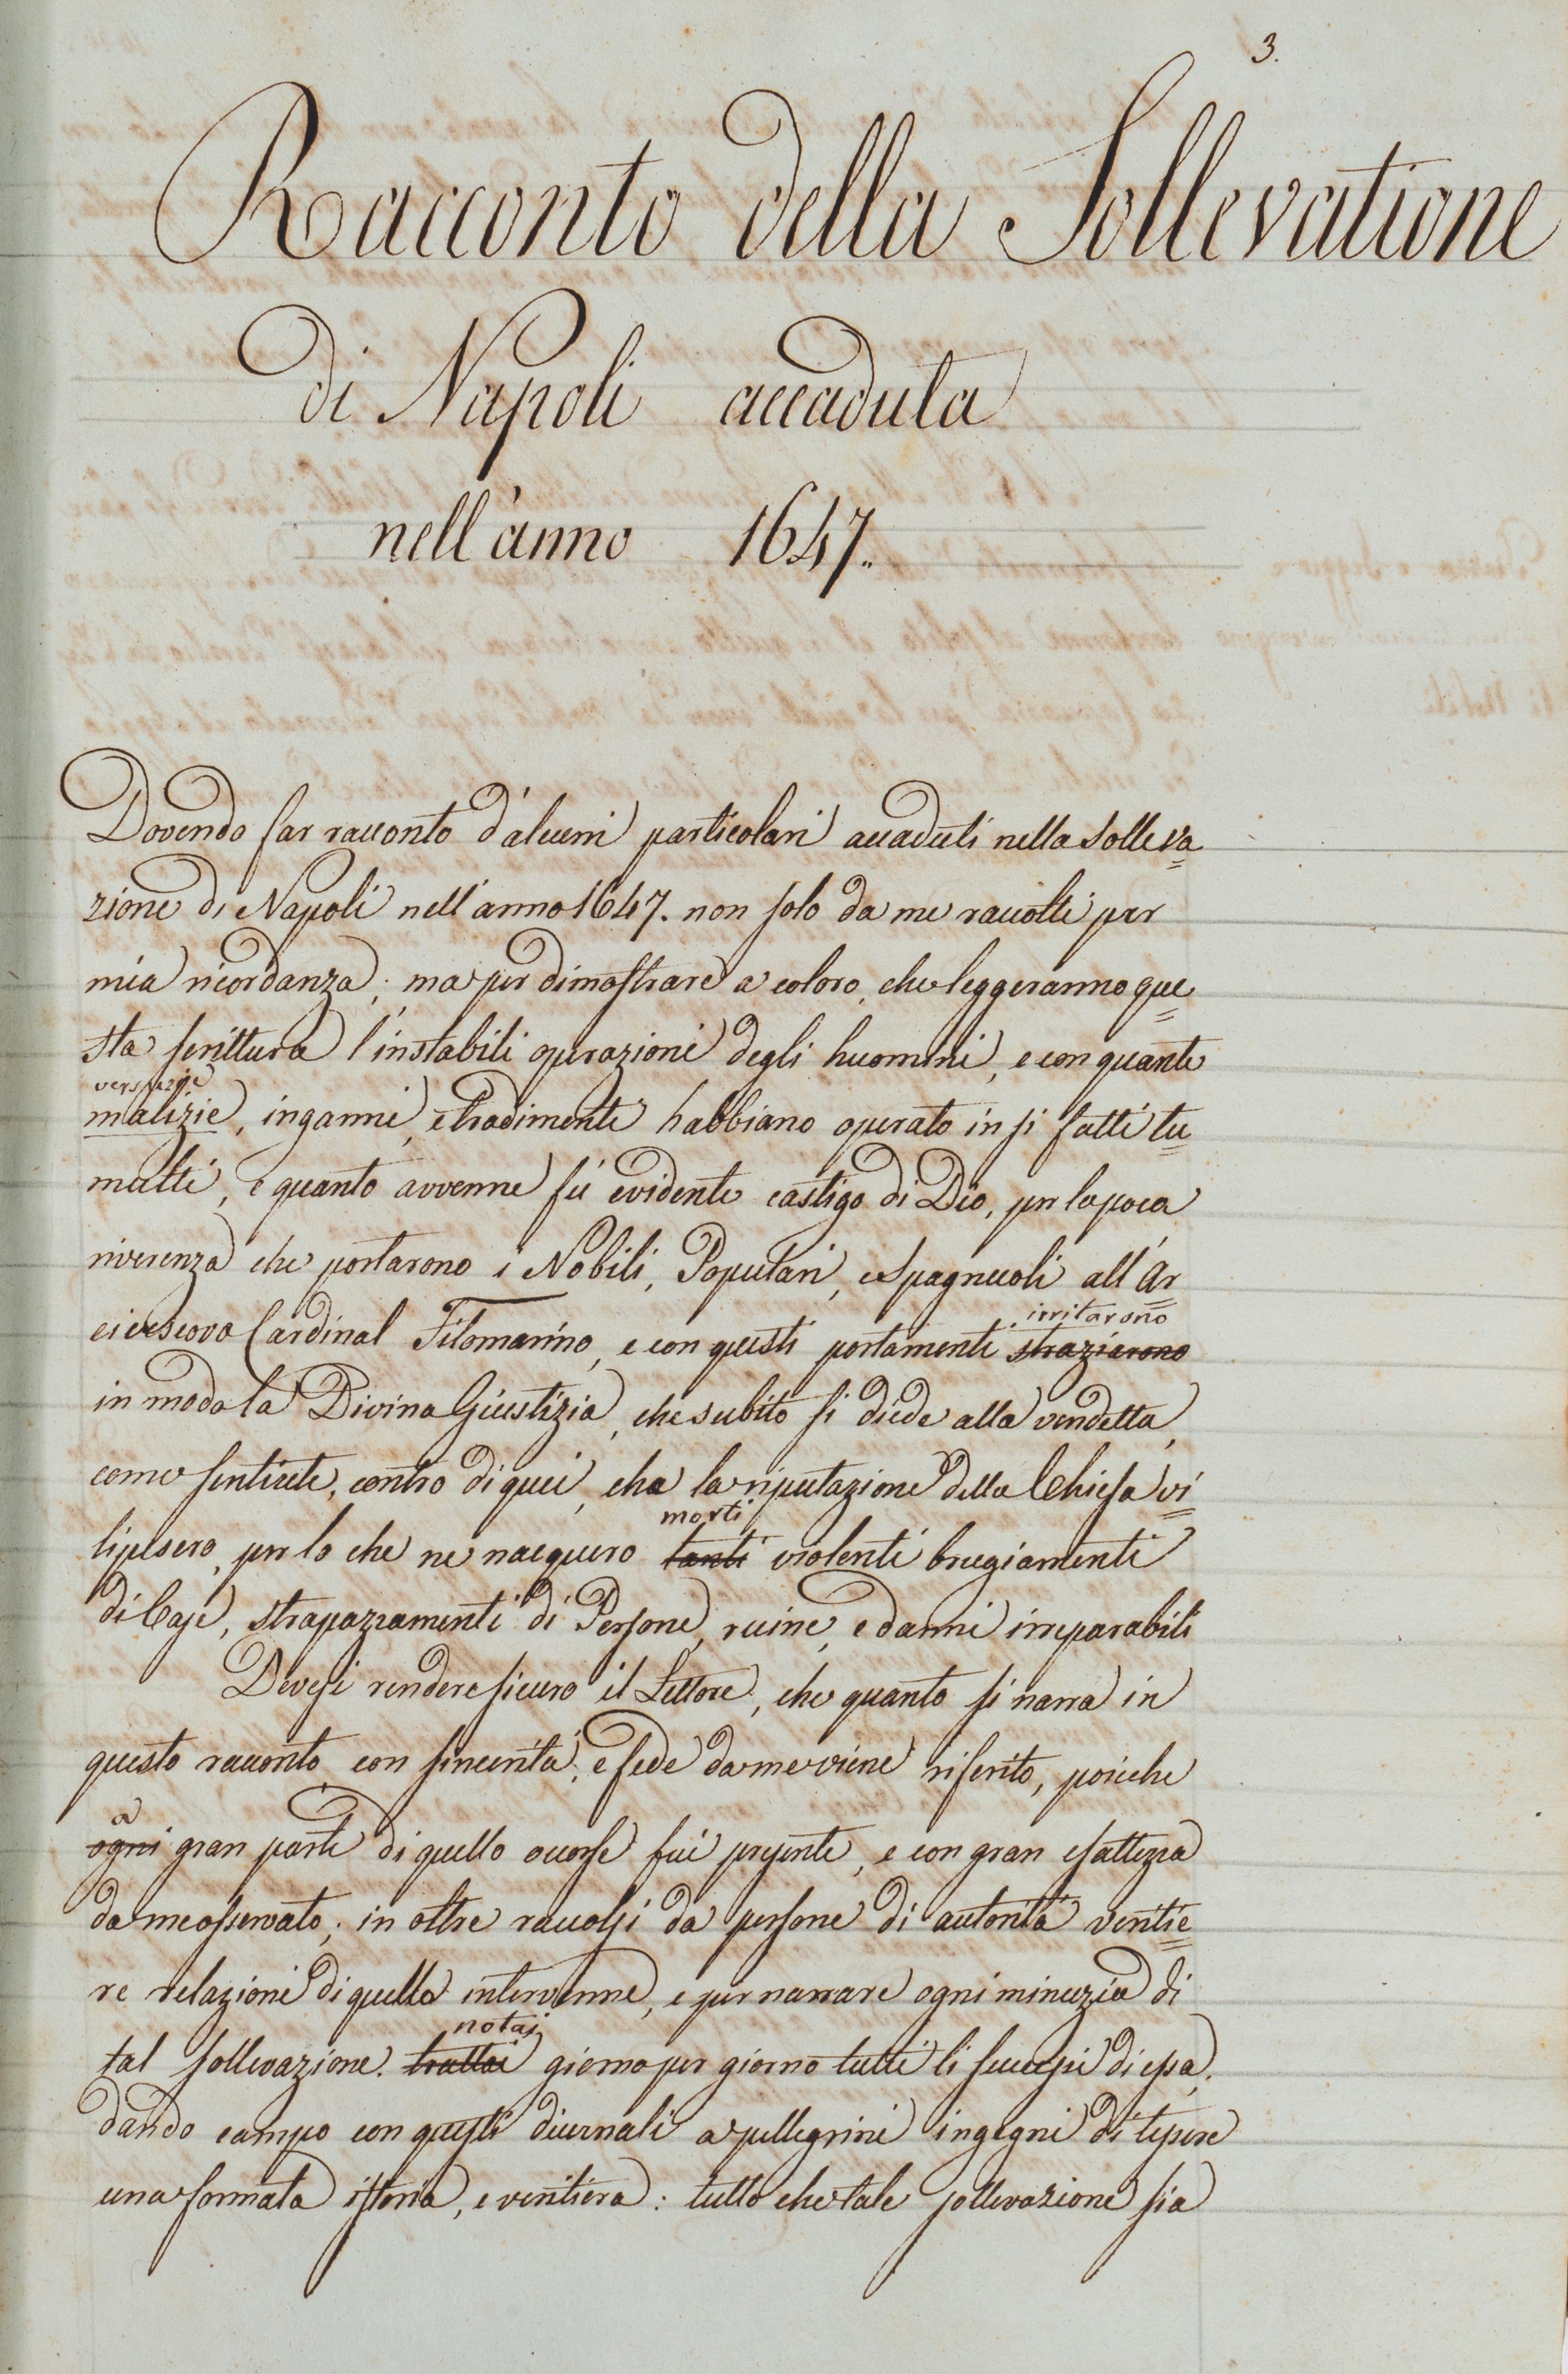 3.
Racconto della Sollevatione
di Napoli accaduta
nell'anno 1647.
Dovendo far racconto d'alcuni particolari accaduti nella solleva=
zione di Napoli nell'anno 1647. non solo da me raccolti per
mia ricordanza; ma per dimostrare a coloro, che leggeranno que=
sta scrittura l'instabili operazioni degli huomini, e con quante
malizie, inganni, e tradimenti habbiano operato in si fatti tu=
multi, e quanto avvenne fù evidente castigo di Dio, per la poca
riverenza che portarono i Nobili, Populari, e Spagnuoli all'Ar=
irritarono
civescovo Cardinal Filomarino, e con questi portamenti straziarono
in modo la Divina Giustizia, che subito si diede alla vendetta,
come sentirete, contro di quei, che la riputazione della Chiesa vi=
morti
lipesero, per lo che ne nacquero tanti violenti brugiamenti
di Case, strapazzamenti di Persone, ruine, e danni irreparabili
Devesi rendere sicuro il Lettore, che quanto si narra in
questo racconto con sincerità, e fede da me viene riferito, poiche
a
ogni gran parte di quello occorse fui presente, e con gran esattezza
da me osservato; in oltre raccolsi da persone di autorità veritie=
re relazioni di quello intervenne, e per narrare ogni minuzia di
notai
tal sollevazione. trattai giorno per giorno tutti li successi di essa,
dando campo con questi diurnali a pellegrini ingegni di tessere
una formata istoria, e veritiera: tutto che tale sollevazione sia